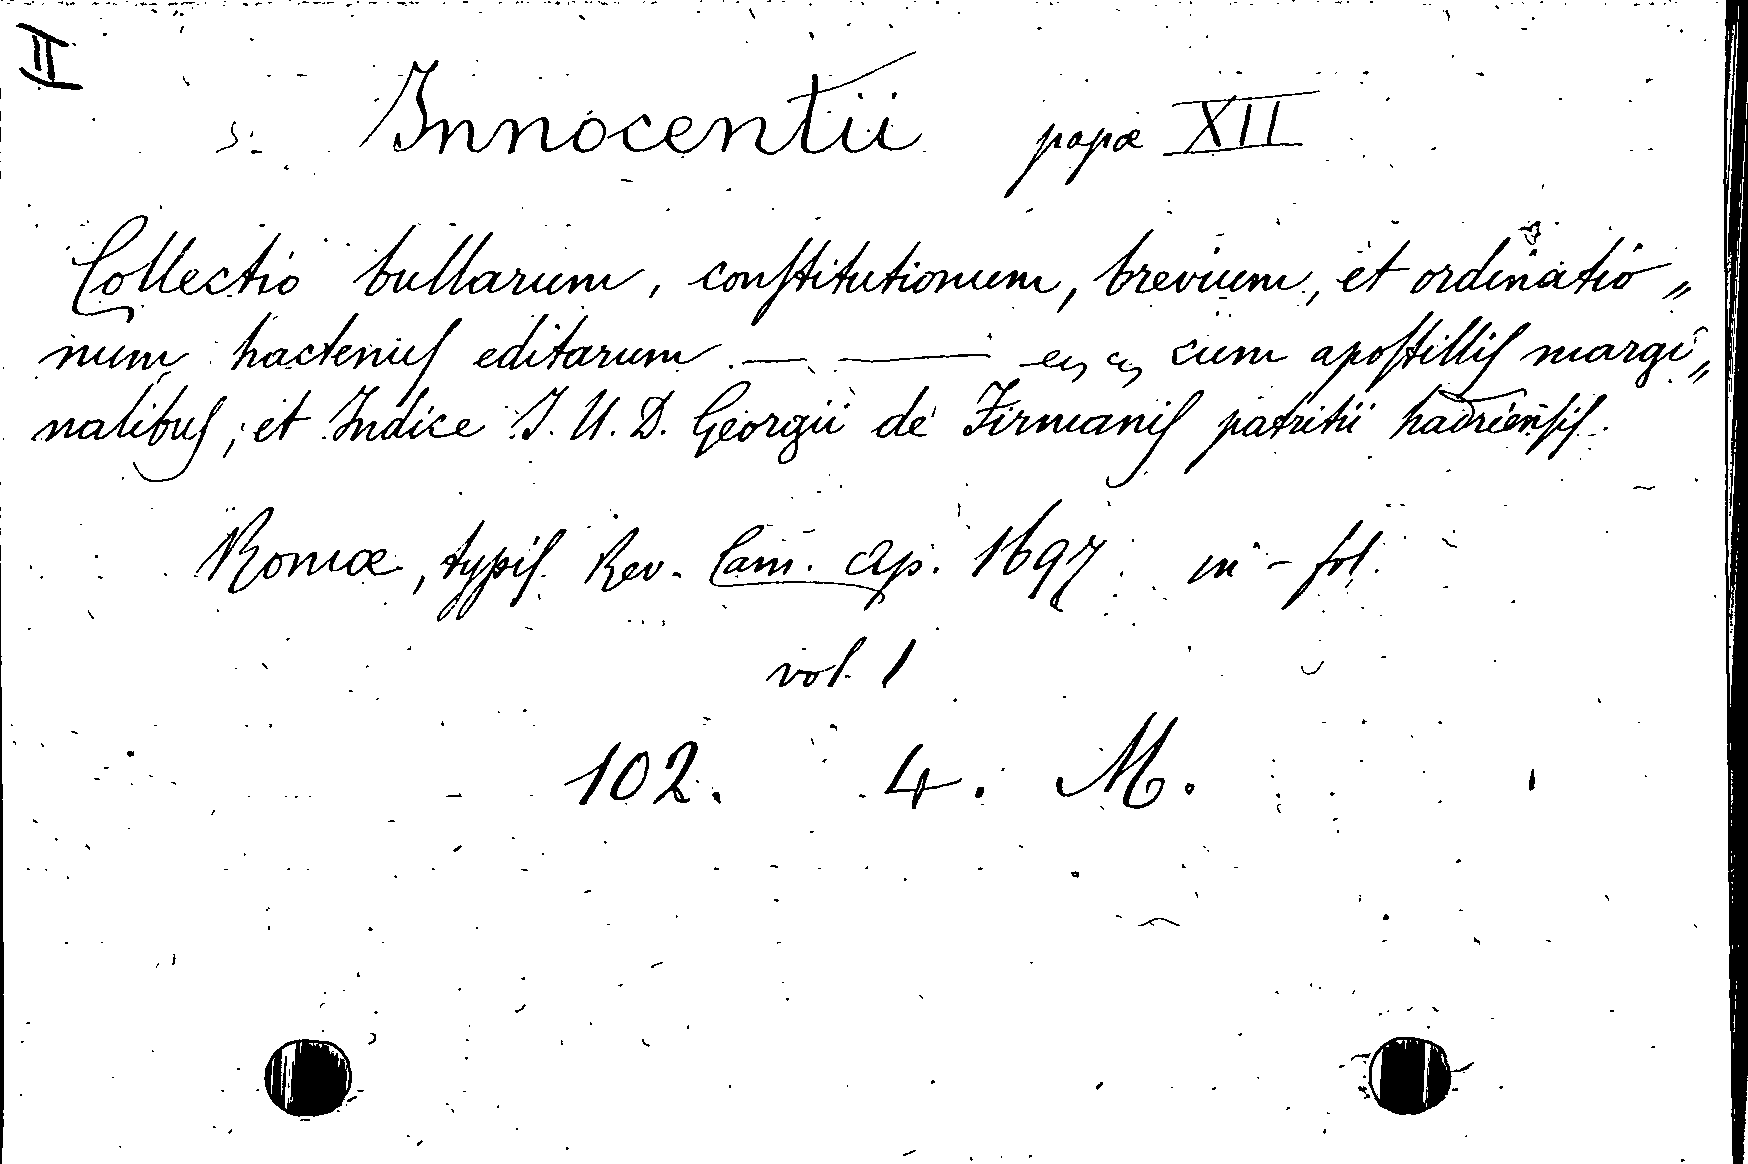 II
Innocentii papæ XII
Collectio bullarum, constitutionum, brevium, et ordinatio„
num hactenus editarum — —— cum apostillis margi„
nalibus, et Indice I. U. D. Georgii de Firmanis patritii hadriensis.
Romæ, typis Rev. Cam. Ap. 1697 in-fol.
vol. 1
102. 4. M.